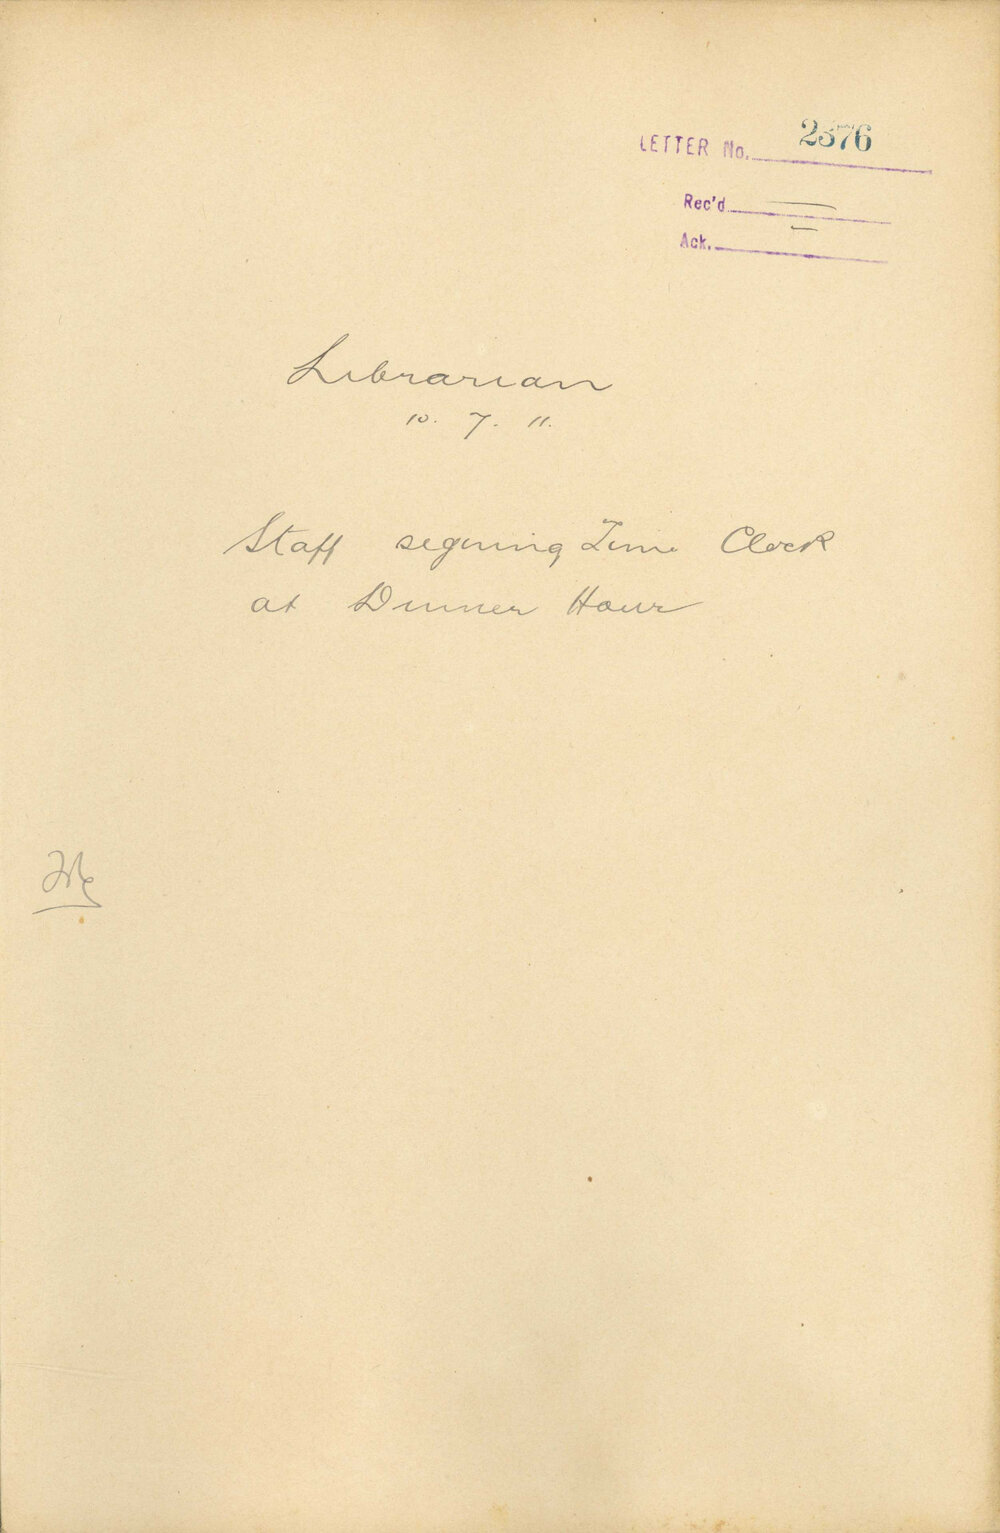 LETTER No. 2376
Rec'd
Ack.
Librarian
10. 7. 11.
Staff signing Time Clock
at Dinner Hour